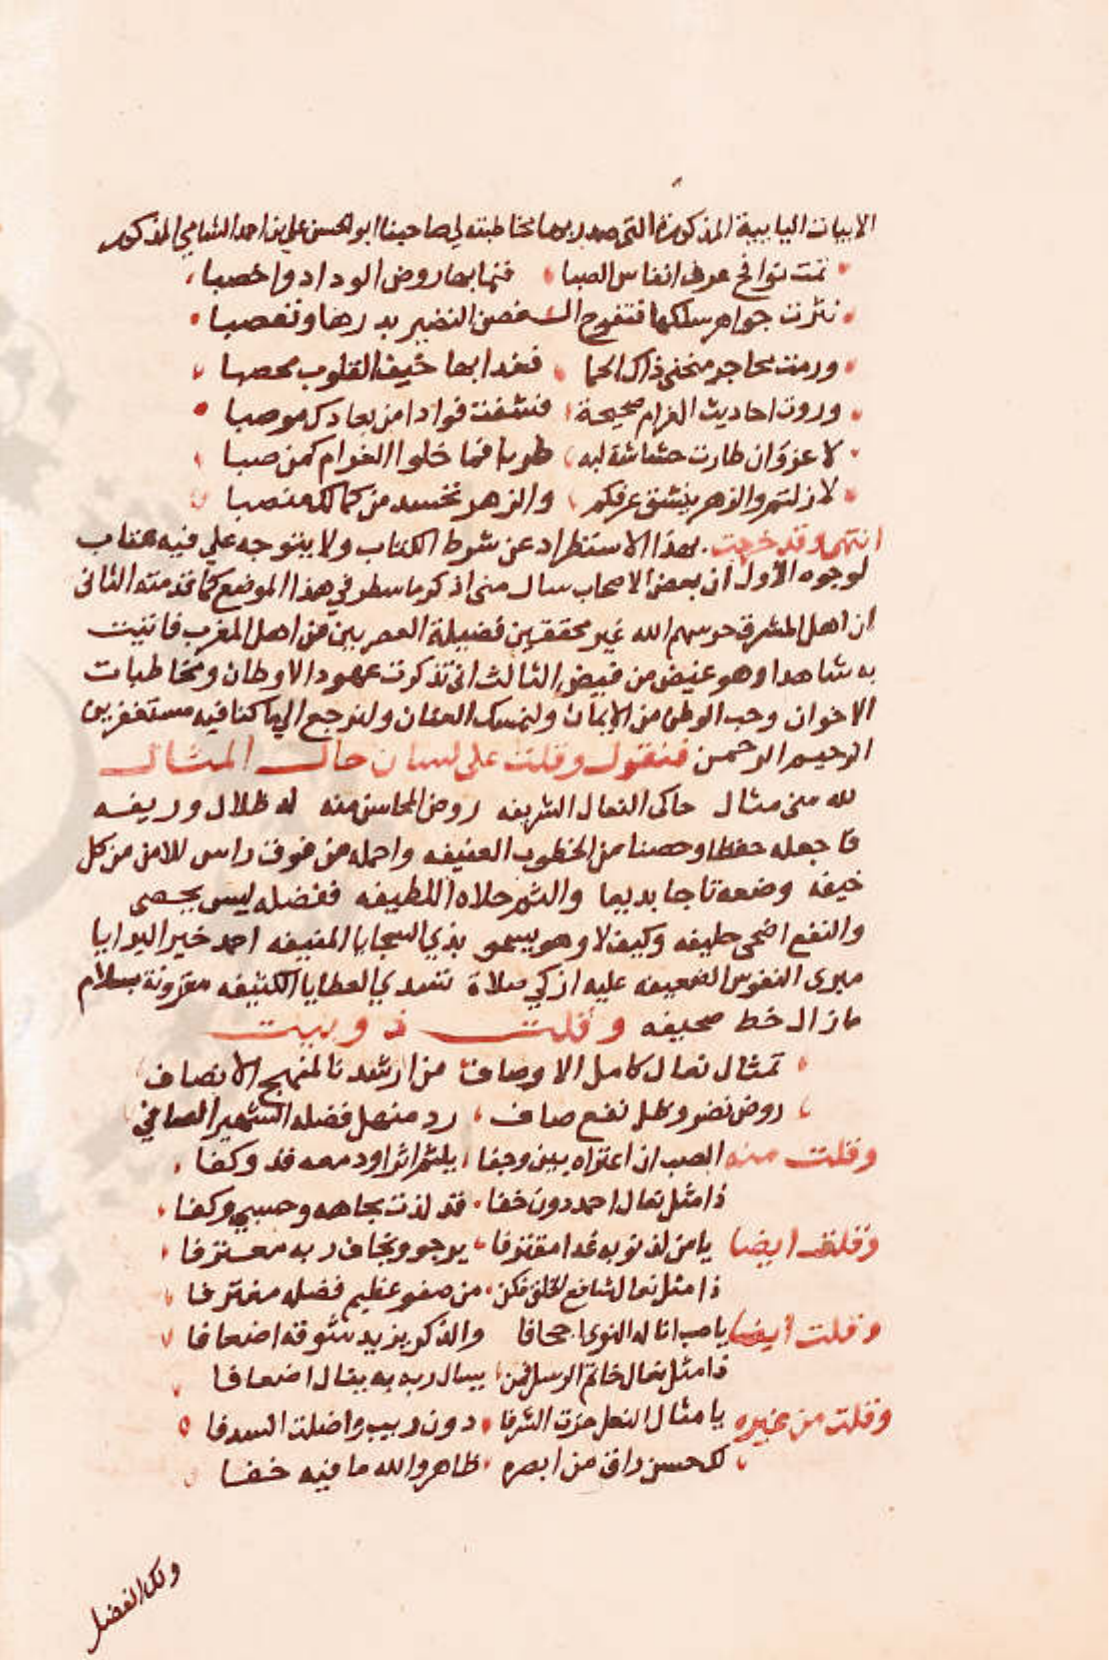 الابيات اليابية المذكورة التي صدر بها مخاطبته لي صاحبنا ابو الحسن علي بن احمد الشامي المذكور
نمت نوافح عرف انفاس الصبا فنما بها روض الوداد واخصبا
نثرت جواهر سلكها فتفوح الـ ـغصن النضير بدرها وتعصبا
ورمت بحاجر منحنى ذاك الحما فغدا بها خيف القلوب محصبا
وروت احاديث الغرام صحيحة فشفت فوادا من بعادك موصبا
لا غرو ان طارت حشاشة لبه طربا فما خلوا الغرام كمن صبا
لا زلتم والزهر ينشق عرفكم والزهر تحسد من كمالك منصبا
انتهى وقد خرجت بهذا الاستطراد عن شرط الكتاب ولا يتوجه علي فيه عتاب
لوجوه الاول ان بعض الاصحاب سال مني ذكر ما سطر في هذا الموضع كما قدمته الثاني
ان اهل المشرق حرسهم الله غير محققين فضيلة العصريين من اهل المغرب فاتيت
به شاهدا وهو غيض من فيض الثالث اني تذكرت عهود الاوطان ومخاطبات
الاخوان وحب الوطن من الايمان ولنمسك العنان ولنرجع الى ما كنا فيه مستغفرين
الرحيم الرحمن فنقول وقلت على لسان حال المثال
لله مني مثال حاكى النعال الشريفه روض المحاسن منه له ظلال وريفه
فاجعله حفظا وحصنا من الخطوب العنيفه واحمله من فوق راس للامن من كل
خيفه وضعه تاجا بديها والثم حلاه اللطيفه ففضله ليس يحصى
والنفع اضحى حليفه وكيف لا وهو يسمو بذي السجايا المنيفه احمد خير البرايا
مبرى النفوس الضعيفه عليه ازكي صلاة تسدي العطايا الكثيفه مقرونة بسلام
ما زال خط صحيفه وقلت ذوبيت
تمثال نعال كامل الاوصاف من ارشدنا لمنهج الانصاف
روض نضر وظل نفع صاف رد منهل فضله الشهير الصافي
وقلت منه الصب ان اعتراه بين وجفا يلثم اثرا ودمعه قد وكفا
ذا مثل نعال احمد دون خفا قد لذت بجاهه وحسبي وكفا
وقلت ايضا يا من لذنوبه غدا مقترفا يرجو ويخاف ربه معترفا
ذا مثل نعال شافع الخلق فكن من صفو عظيم فضله مغترفا
وقلت ايضا يا صب اناله النوى اجحافا والذكر يزيد شوقه اضعافا
ذا مثل نعال خاتم الرسل فمن يسال ربه به ينال اضعافا
وقلت من غيره يا مثال النعل حزت الشرفا دون ريب واضلت السدفا
لك حسن راق من ابصره ظاهر والله ما فيه خفا
ولك الفضل